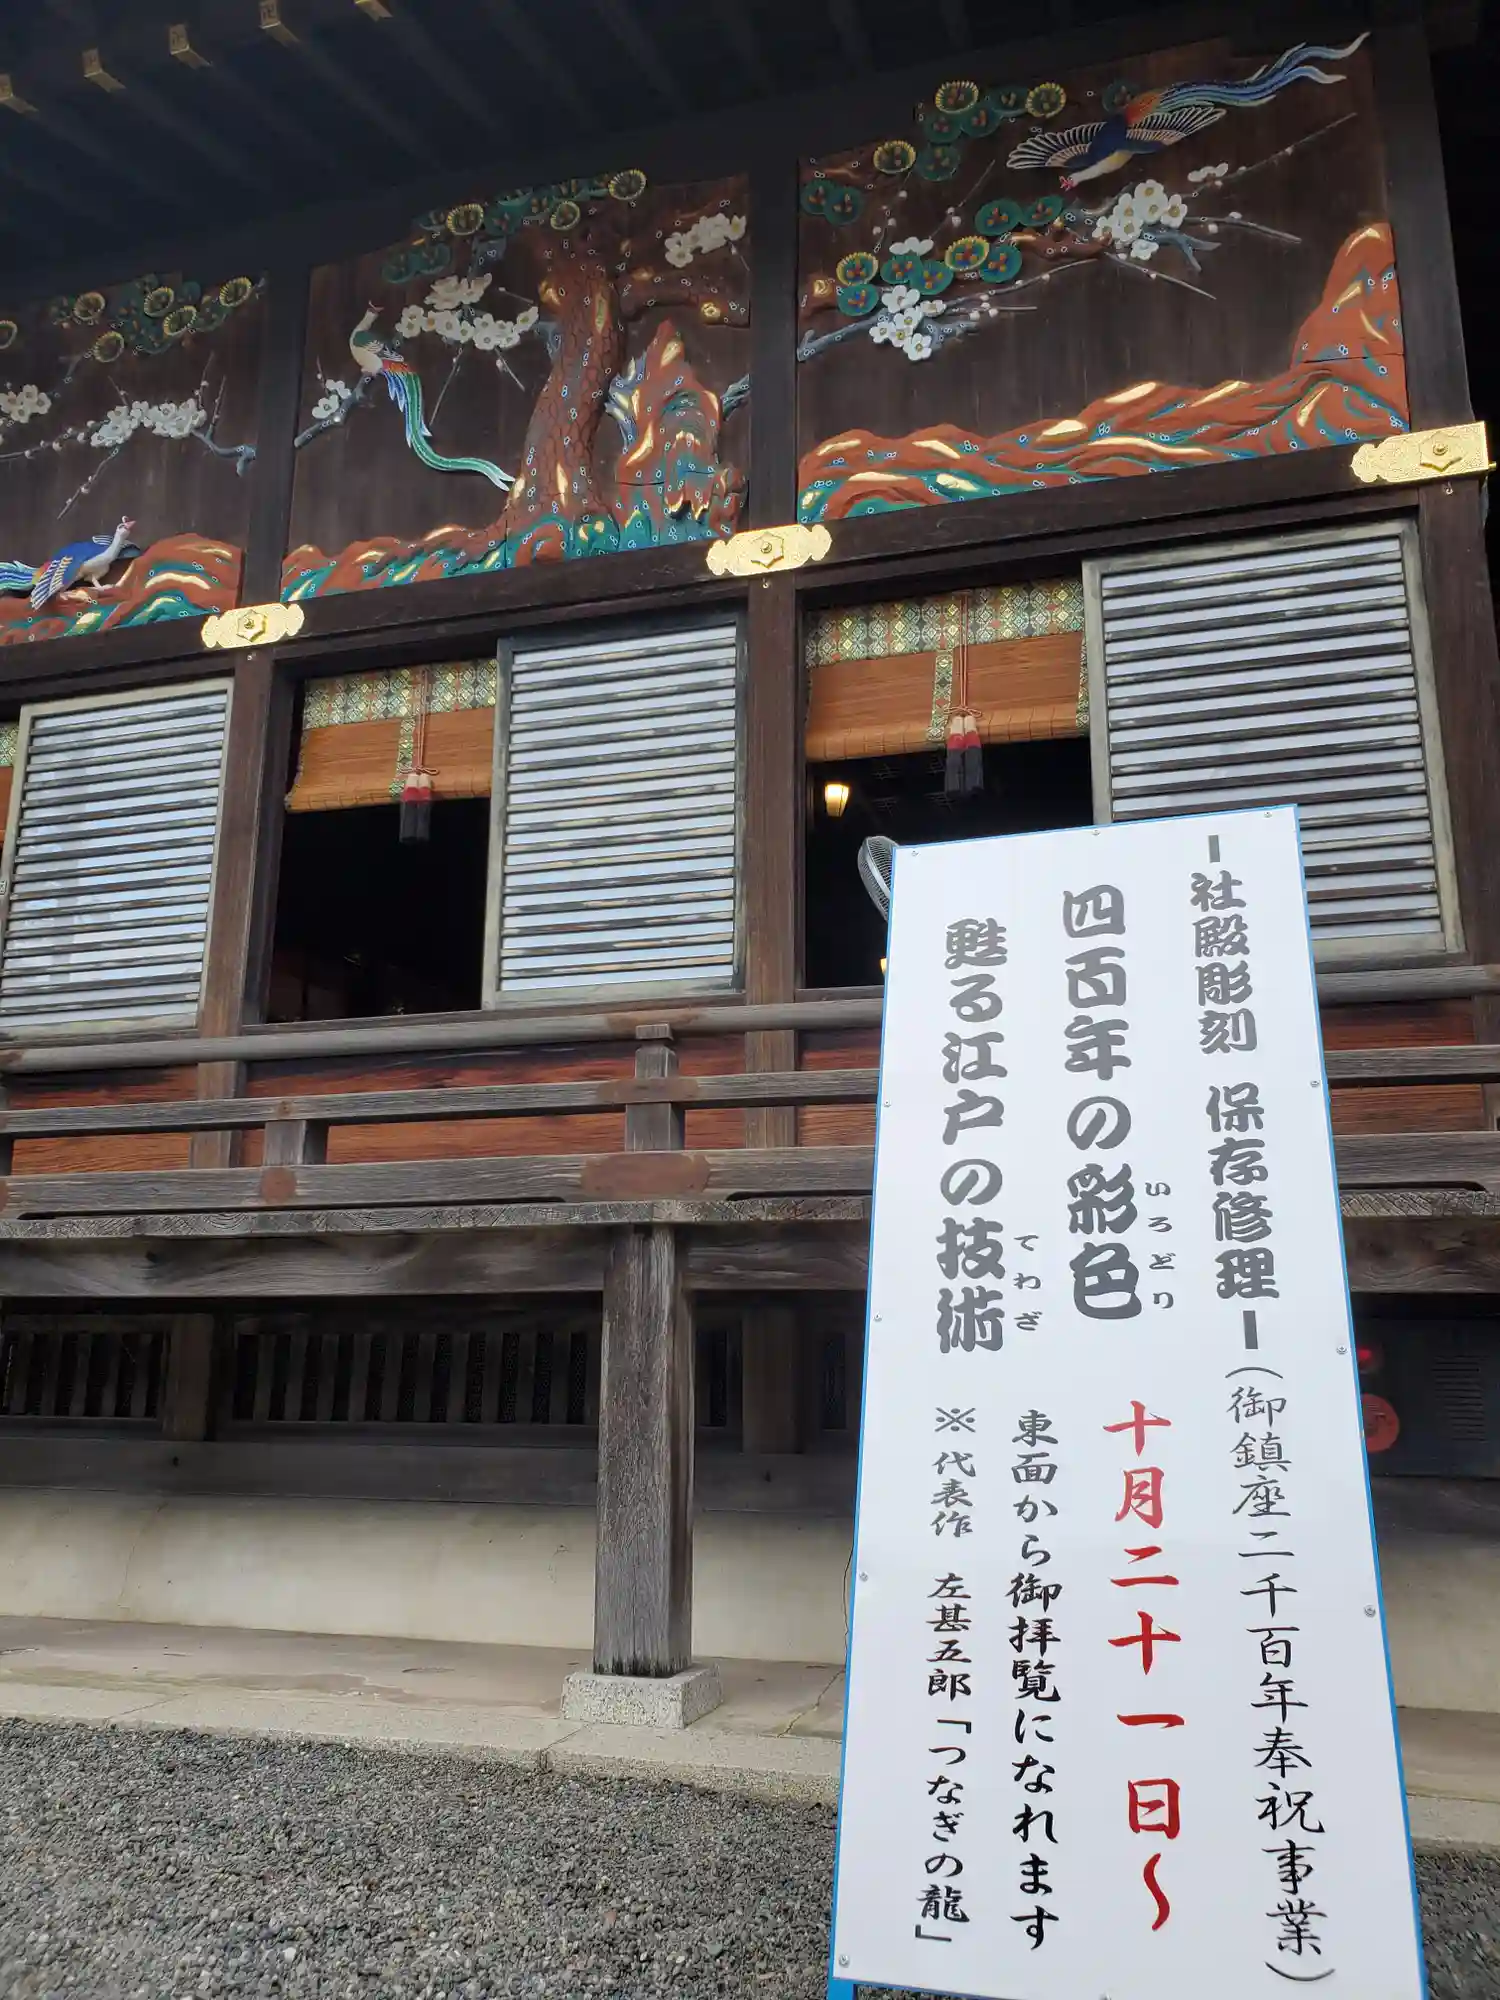 ー社殿彫刻 保存修理ー(御鎮座二千百年奉祝事業)
四百年の彩色 十月二十一日〜
いろどり
甦る江戸の技術 東面から御拝覧になれます
てわざ
※代表作 左甚五郎「つなぎの龍」